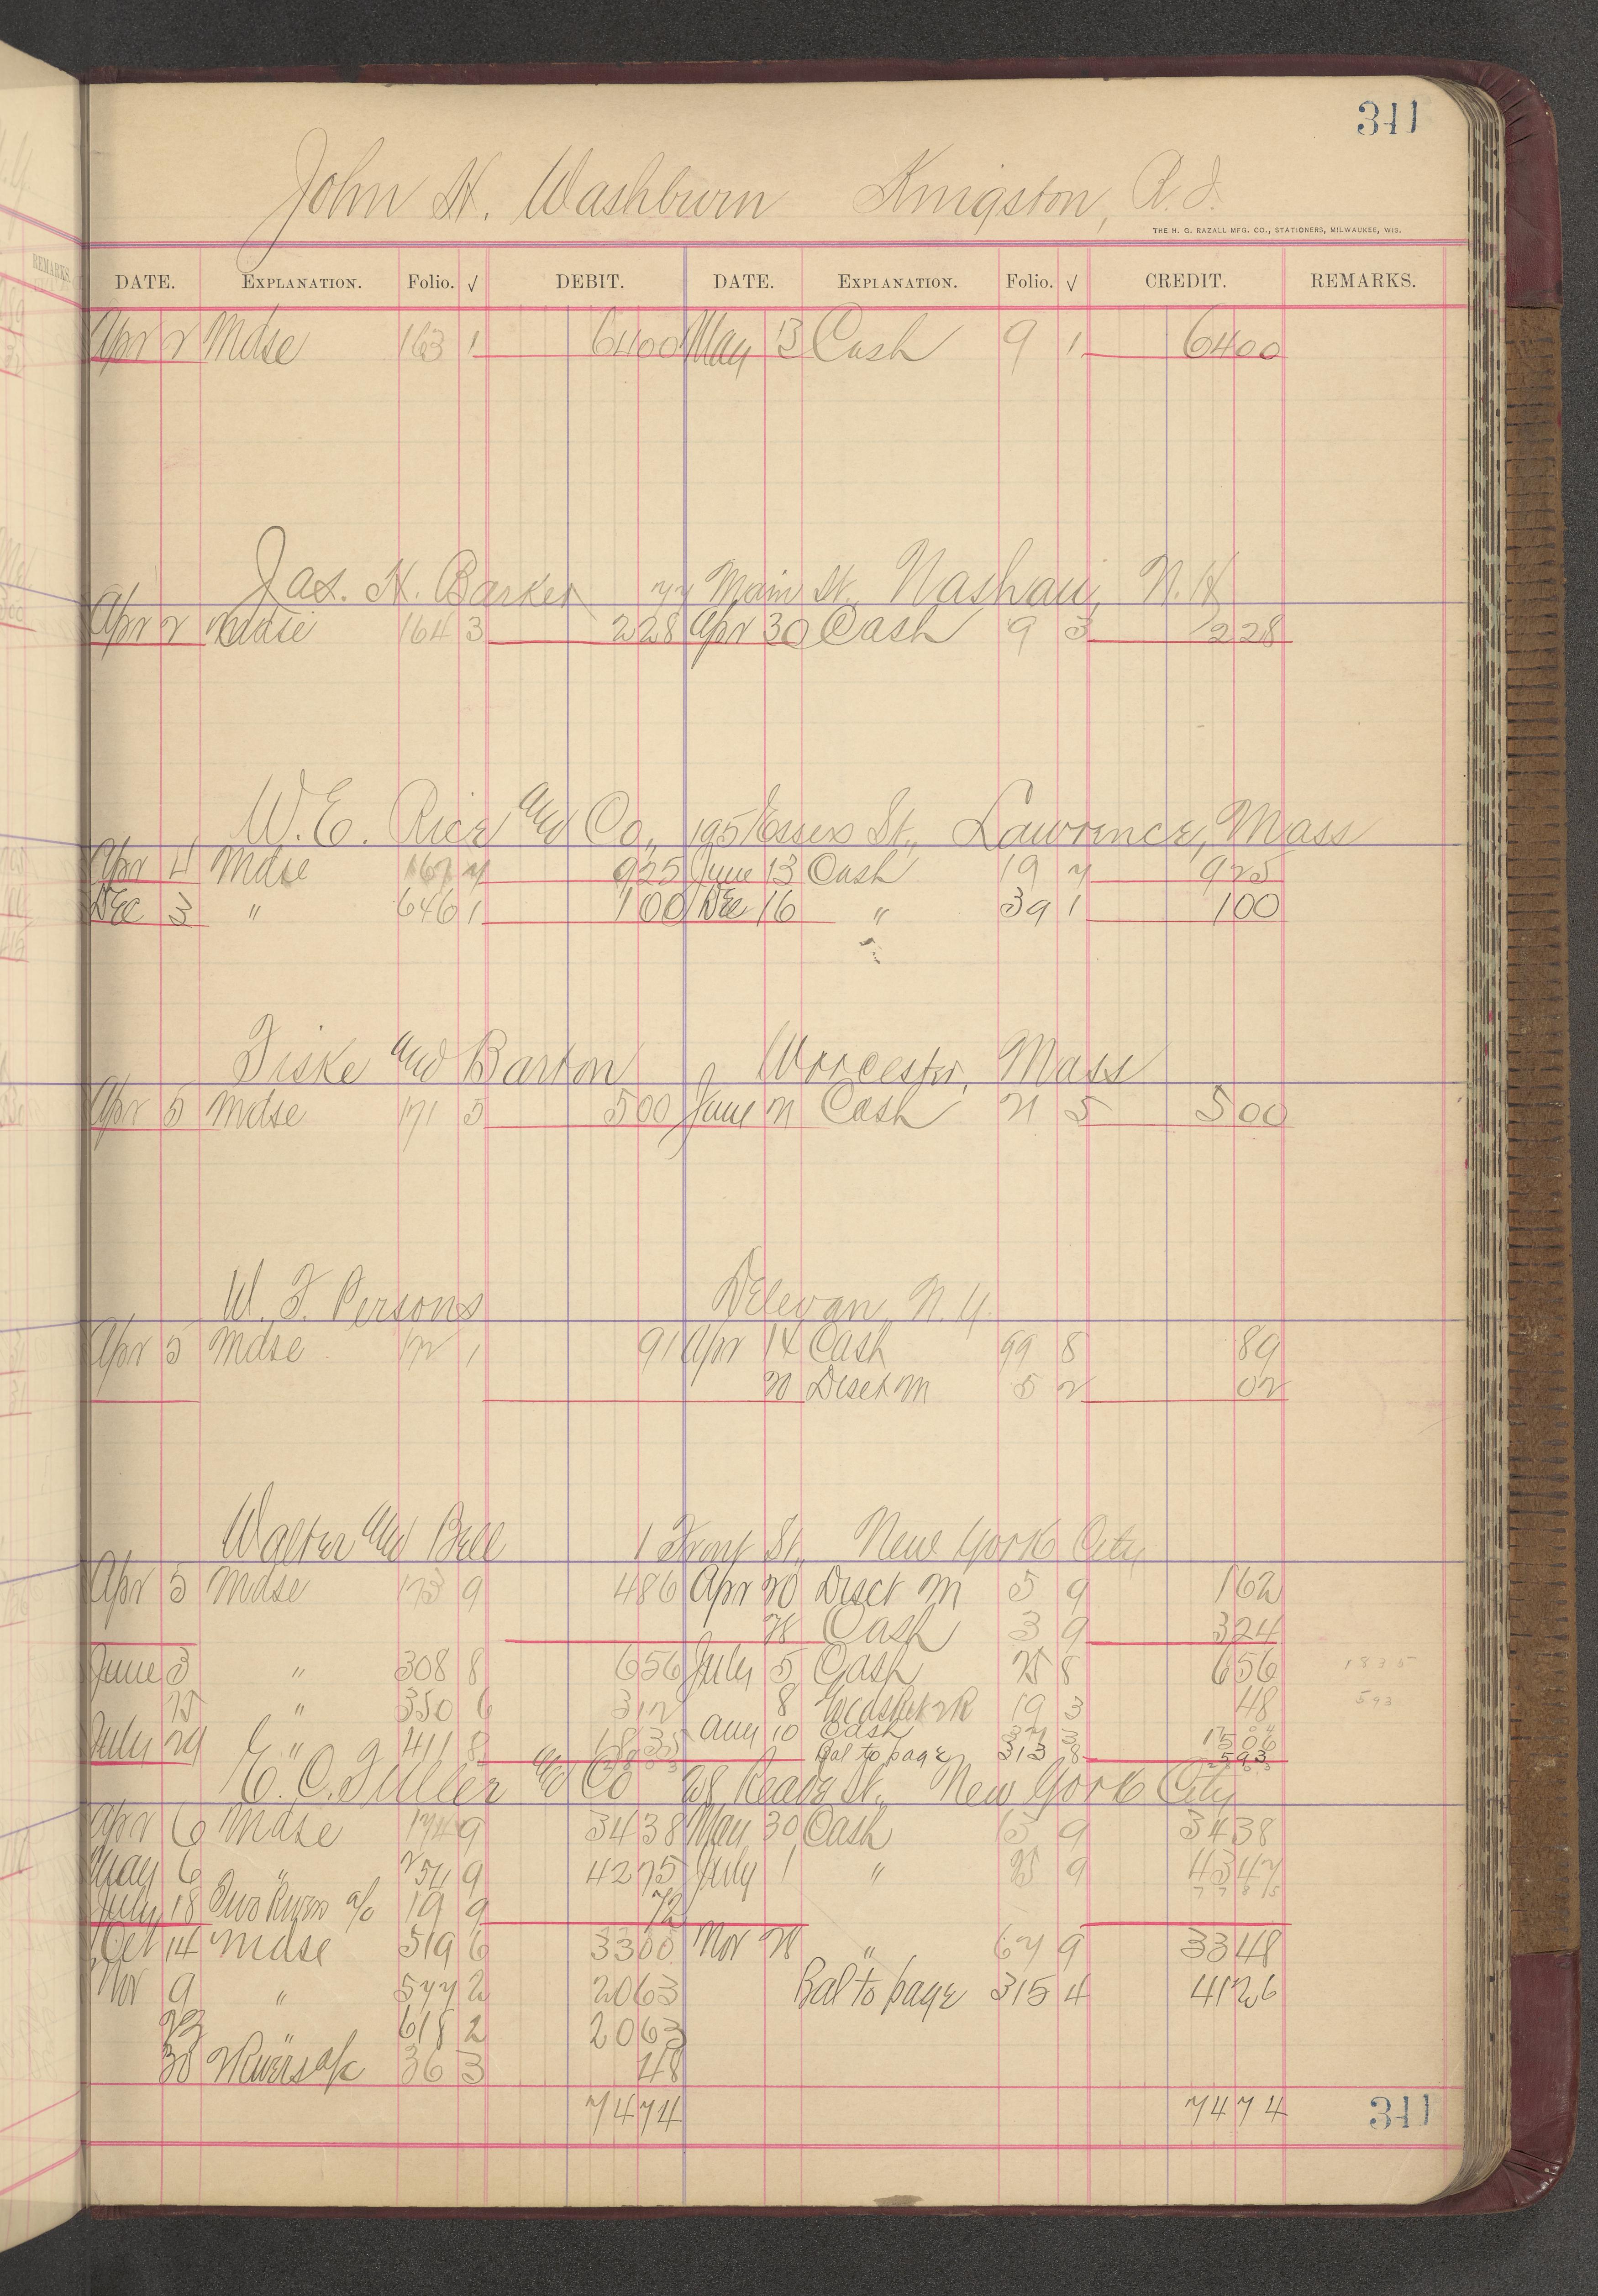 341
John H. Washburn Knigston, R.I.
THE H. G. RAZALL MFG. CO., STATIONERS, MILWAUKEE, WIS.
DATE. EXPLANATION. Folio. √ DEBIT. DATE. EXPLANATION. Folio. √ CREDIT. REMARKS.
Apr 2 Mdse 163 1 6400 May 13 Cash 9 1 6400
Jas. H. Barker 77 Main St. Nashau, N.H
Apr 2 Mdse 164 3 228 Apr 30 Cash 9 3 228
W. E. Rice and Co., 195 Essex St., Lawrence, Mass
Apr 4 Mdse 167 7 925 June 13 Cash 19 7 925
Dec 3 " 646 1 100 Dec 16 " 39 1 100
Fiske and Barton Worcester, Mass
Apr 5 Mdse 171 5 500 June 21 Cash 21 5 500
W. F. Persons Delevan, N.Y.
Apr 5 Mdse 172 1 91 Apr 14 Cash 99 8 89
20 Disct M 5 2 02
Walter and Bell 1 Front St., New York City
Apr 5 Mdse 173 9 486 Apr 20 Disct M 5 9 162
28 Cash 3 9 324
June 3 " 308 8 656 July 5 Cash 25 8 656 1835
25 " 350 6 312 8 19 3 48 593
July 29 " 411 8 1835 Aug 10 Cash 37 3 1506
Bal to page 313 8 593
E. C. Fuller and Co 28 Reade St., New York City
Apr 6 Mdse 174 9 3438 May 30 Cash 15 9 3438
May 6 " 254 9 4275 July 1 " 25 9 4347
7785
July 18 Two Rivers a/c 19 9 72
Oct 14 Mdse 519 6 3300 Nov 28 " 67 9 3348
Nov 9 " 577 2 2063 Bal to page 315 4 4126
23 " 618 2 2063
30 2 Rivers a/c 36 3 48
7474 7474
341